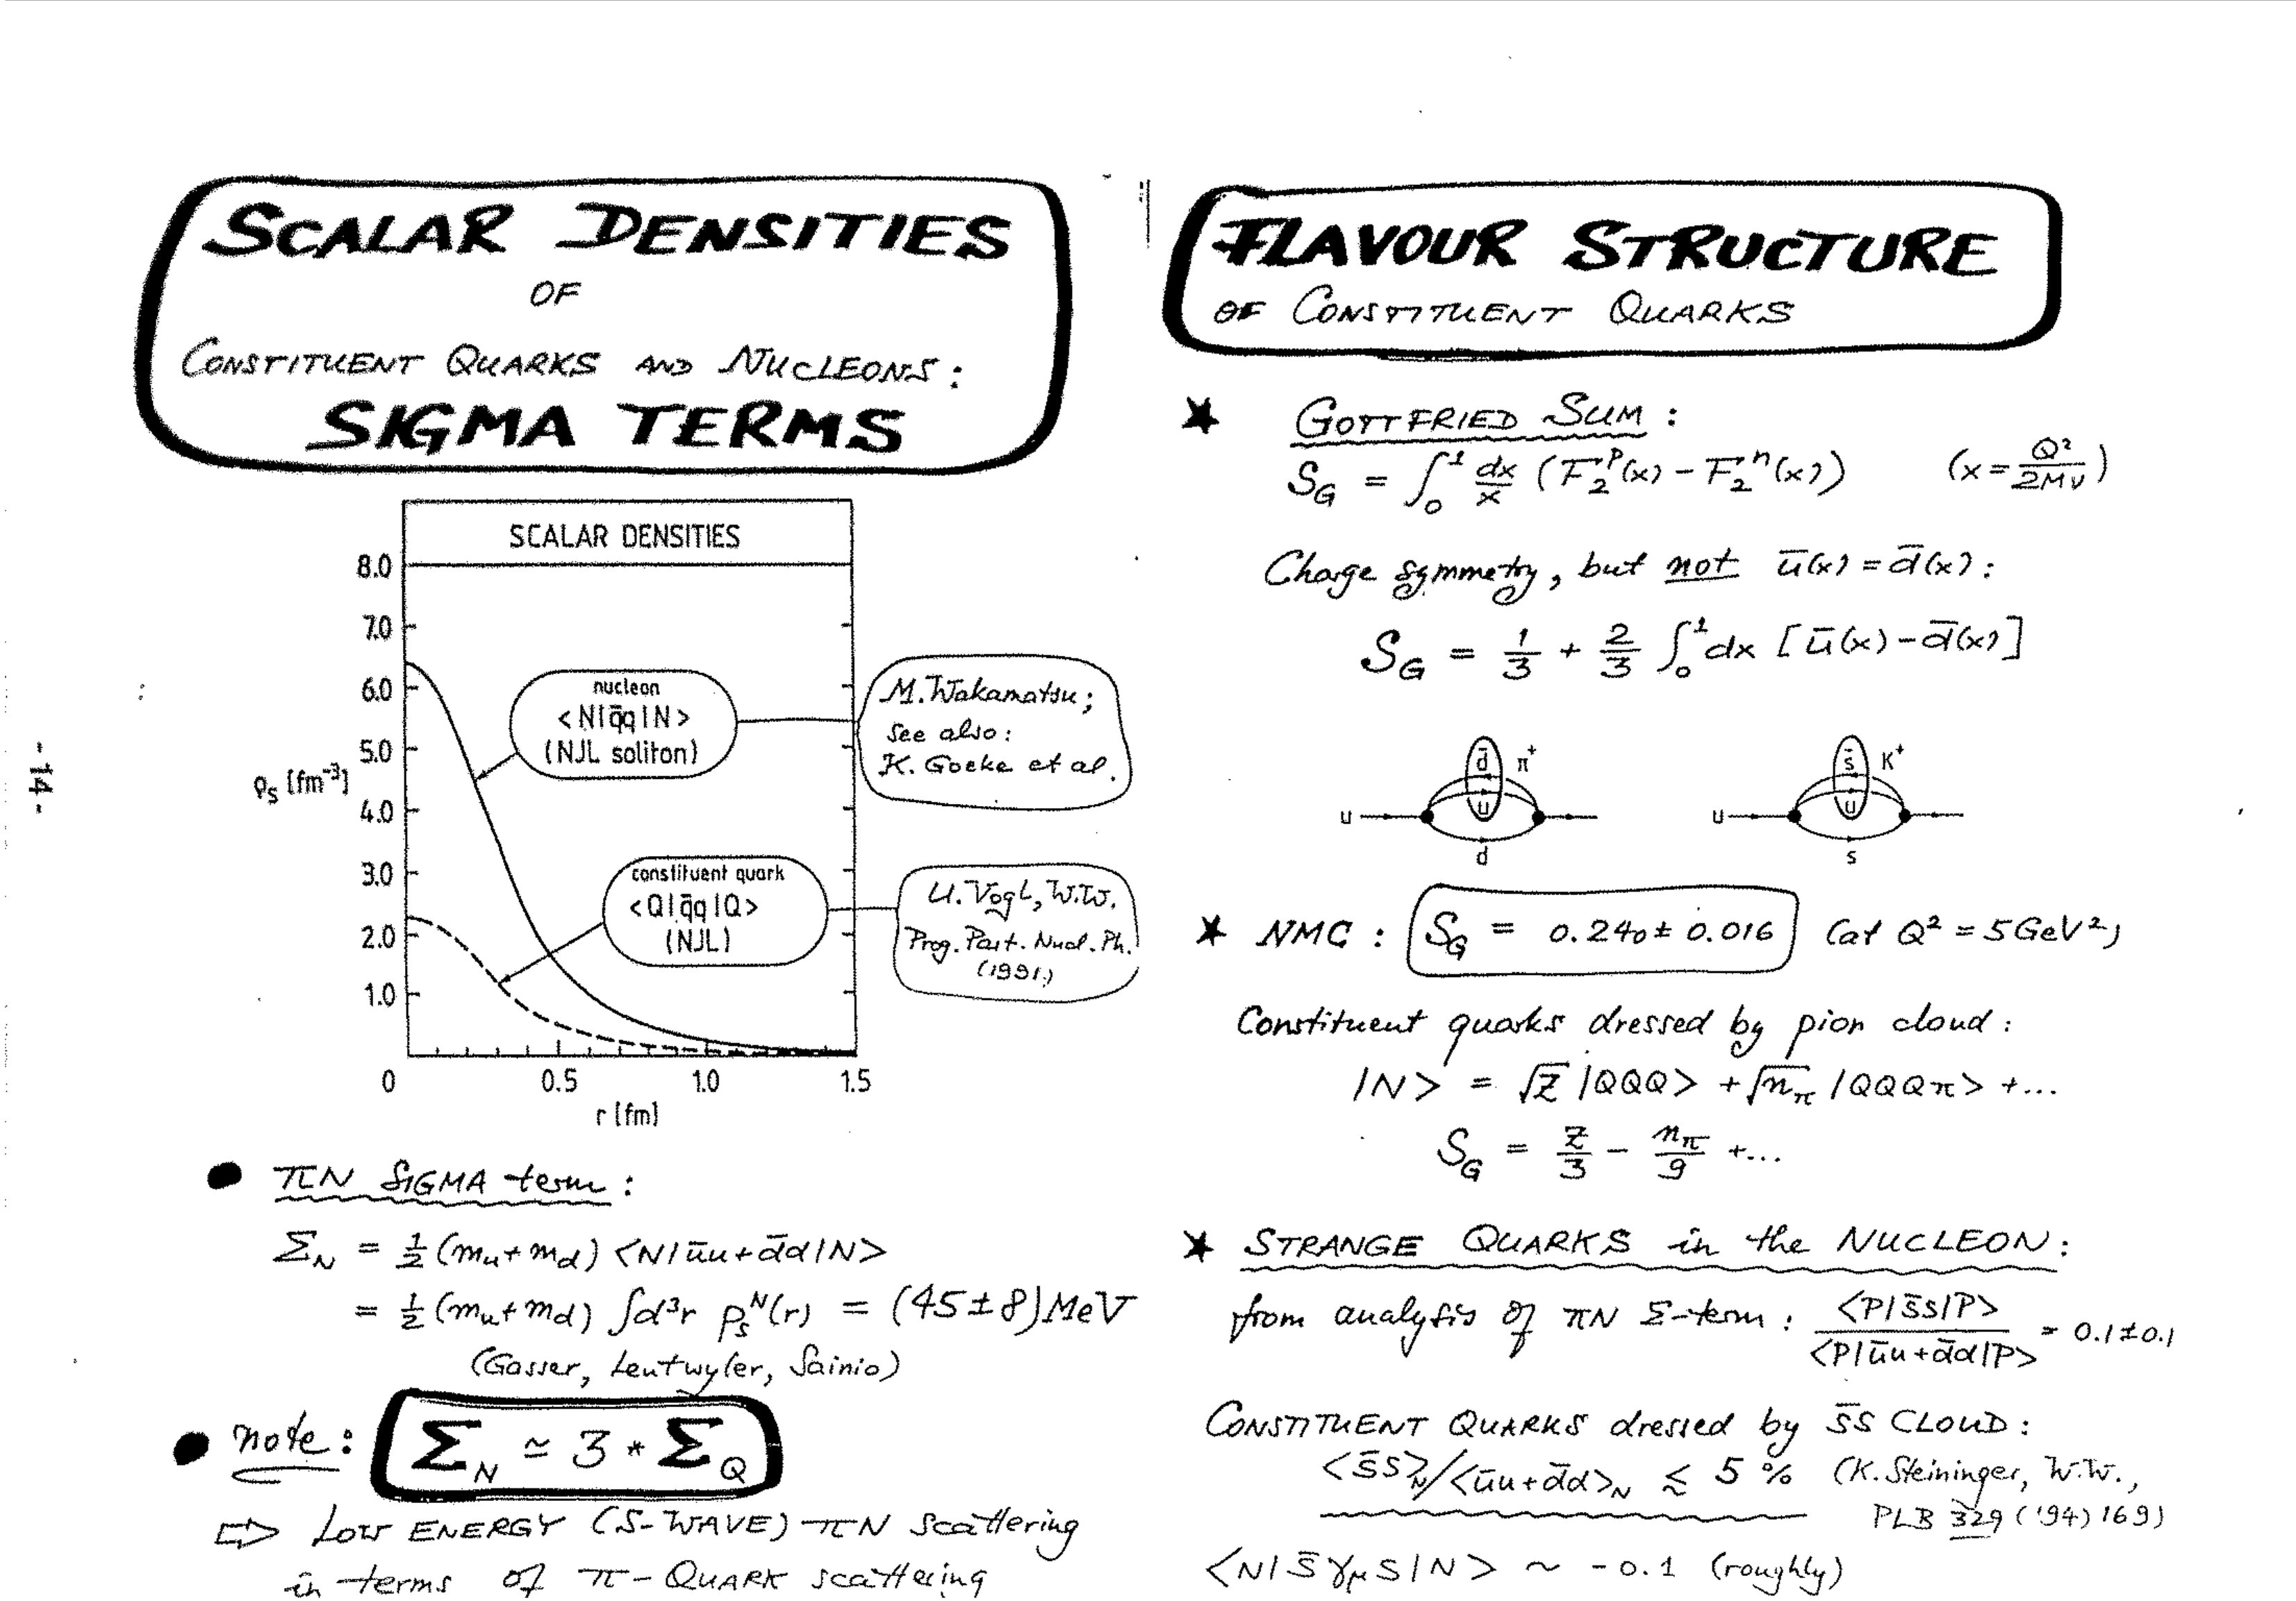 SCALAR DENSITIES
OF
CONSTITUENT QUARKS AND NUCLEONS:
SIGMA TERMS
SCALAR DENSITIES
8.0
7.0
6.0
5.0
4.0
3.0
2.0
1.0
ρs [fm⁻³]
nucleon
<N|q̄q|N>
(NJL soliton)
M. Wakamatsu;
see also:
K. Goeke et al.
constituent quark
<Q|q̄q|Q>
(NJL)
U. Vogl, W.W.
Prog. Part. Nucl. Ph.
(1991)
0 0.5 1.0 1.5
r [fm]
● πN SIGMA term:
Σ_N = ½ (m_u + m_d) <N|ūu + d̄d|N>
= ½ (m_u + m_d) ∫d³r ρ_s^N(r) = (45 ± 8) MeV
(Gasser, Leutwyler, Sainio)
● note: Σ_N ≃ 3 * Σ_Q
⇨ LOW ENERGY (S-WAVE) πN scattering
in terms of π-QUARK scattering
- 14 -
FLAVOUR STRUCTURE
OF CONSTITUENT QUARKS
★ GOTTFRIED SUM:
S_G = ∫₀¹ dx/x (F₂^p(x) - F₂^n(x)) (x = Q²/2Mν)
Charge symmetry, but not ū(x) = d̄(x):
S_G = 1/3 + 2/3 ∫₀¹ dx [ū(x) - d̄(x)]
d̄ π⁺
u
u
d
s̄ K⁺
u
u
s
★ NMC: S_G = 0.240 ± 0.016 (at Q² = 5 GeV²)
Constituent quarks dressed by pion cloud:
|N> = √Z |QQQ> + √n_π |QQQπ> + ...
S_G = Z/3 - n_π/9 + ...
★ STRANGE QUARKS in the NUCLEON:
from analysis of πN Σ-term: <P|s̄s|P> / <P|ūu + d̄d|P> = 0.1 ± 0.1
CONSTITUENT QUARKS dressed by s̄s CLOUD:
<s̄s>_N / <ūu + d̄d>_N ≲ 5 % (K. Steininger, W.W.,
PLB 329 ('94) 169)
<N|s̄γ_μ s|N> ~ -0.1 (roughly)